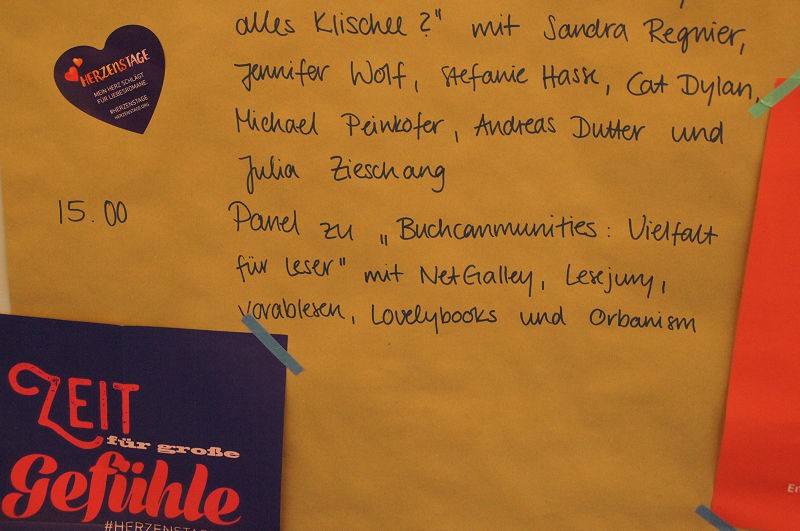 alles Klischee?" mit Sandra Regnier,
Jennifer Wolf, Stefanie Hasse, Cat Dylan,
Michael Peinkofer, Andreas Dutter und
Julia Zieschang
15.00 Panel zu „Buchcommunities: Vielfalt
für Leser" mit NetGalley, Lesejury,
vorablesen, Lovelybooks und Orbanism
HERZENSTAGE
MEIN HERZ SCHLÄGT
FÜR LIEBESROMANE.
#HERZENSTAGE
HERZENSTAGE.ORG
ZEIT
für große
Gefühle